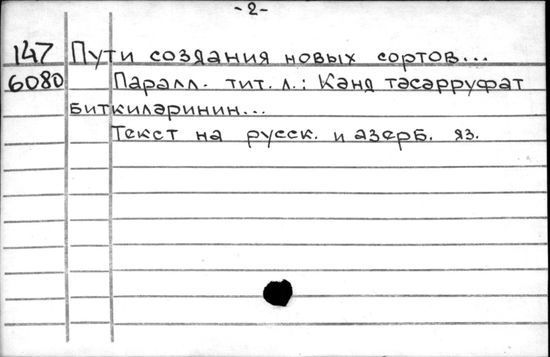 -2-
147 Пути создания новых сортов...
6080 Паралл. тит. л.: Кәнд тәсәрруфат
биткиләринин...
Текст на русск. и азерб. яз.